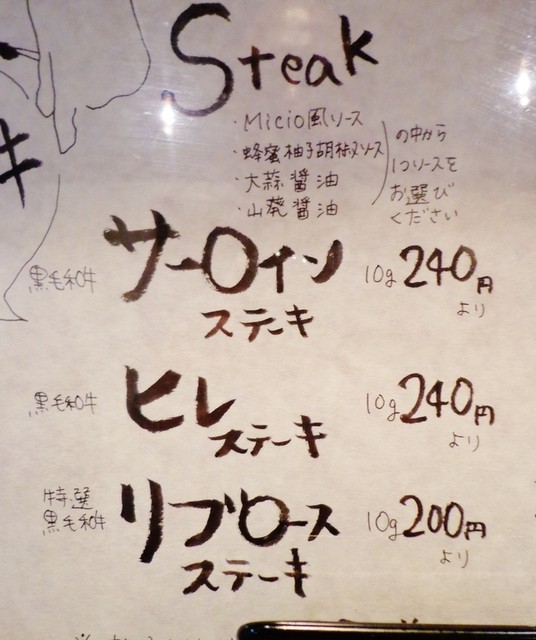 Steak
・Micio風ソース
・蜂蜜柚子胡椒ソース
・大蒜醤油
・山葵醤油
の中から
1つソースを
お選び
ください
黒毛和牛
サーロイン
ステーキ
10g 240円
より
黒毛和牛
ヒレ
ステーキ
10g 240円
より
特選
黒毛和牛
リブロース
ステーキ
10g 200円
より